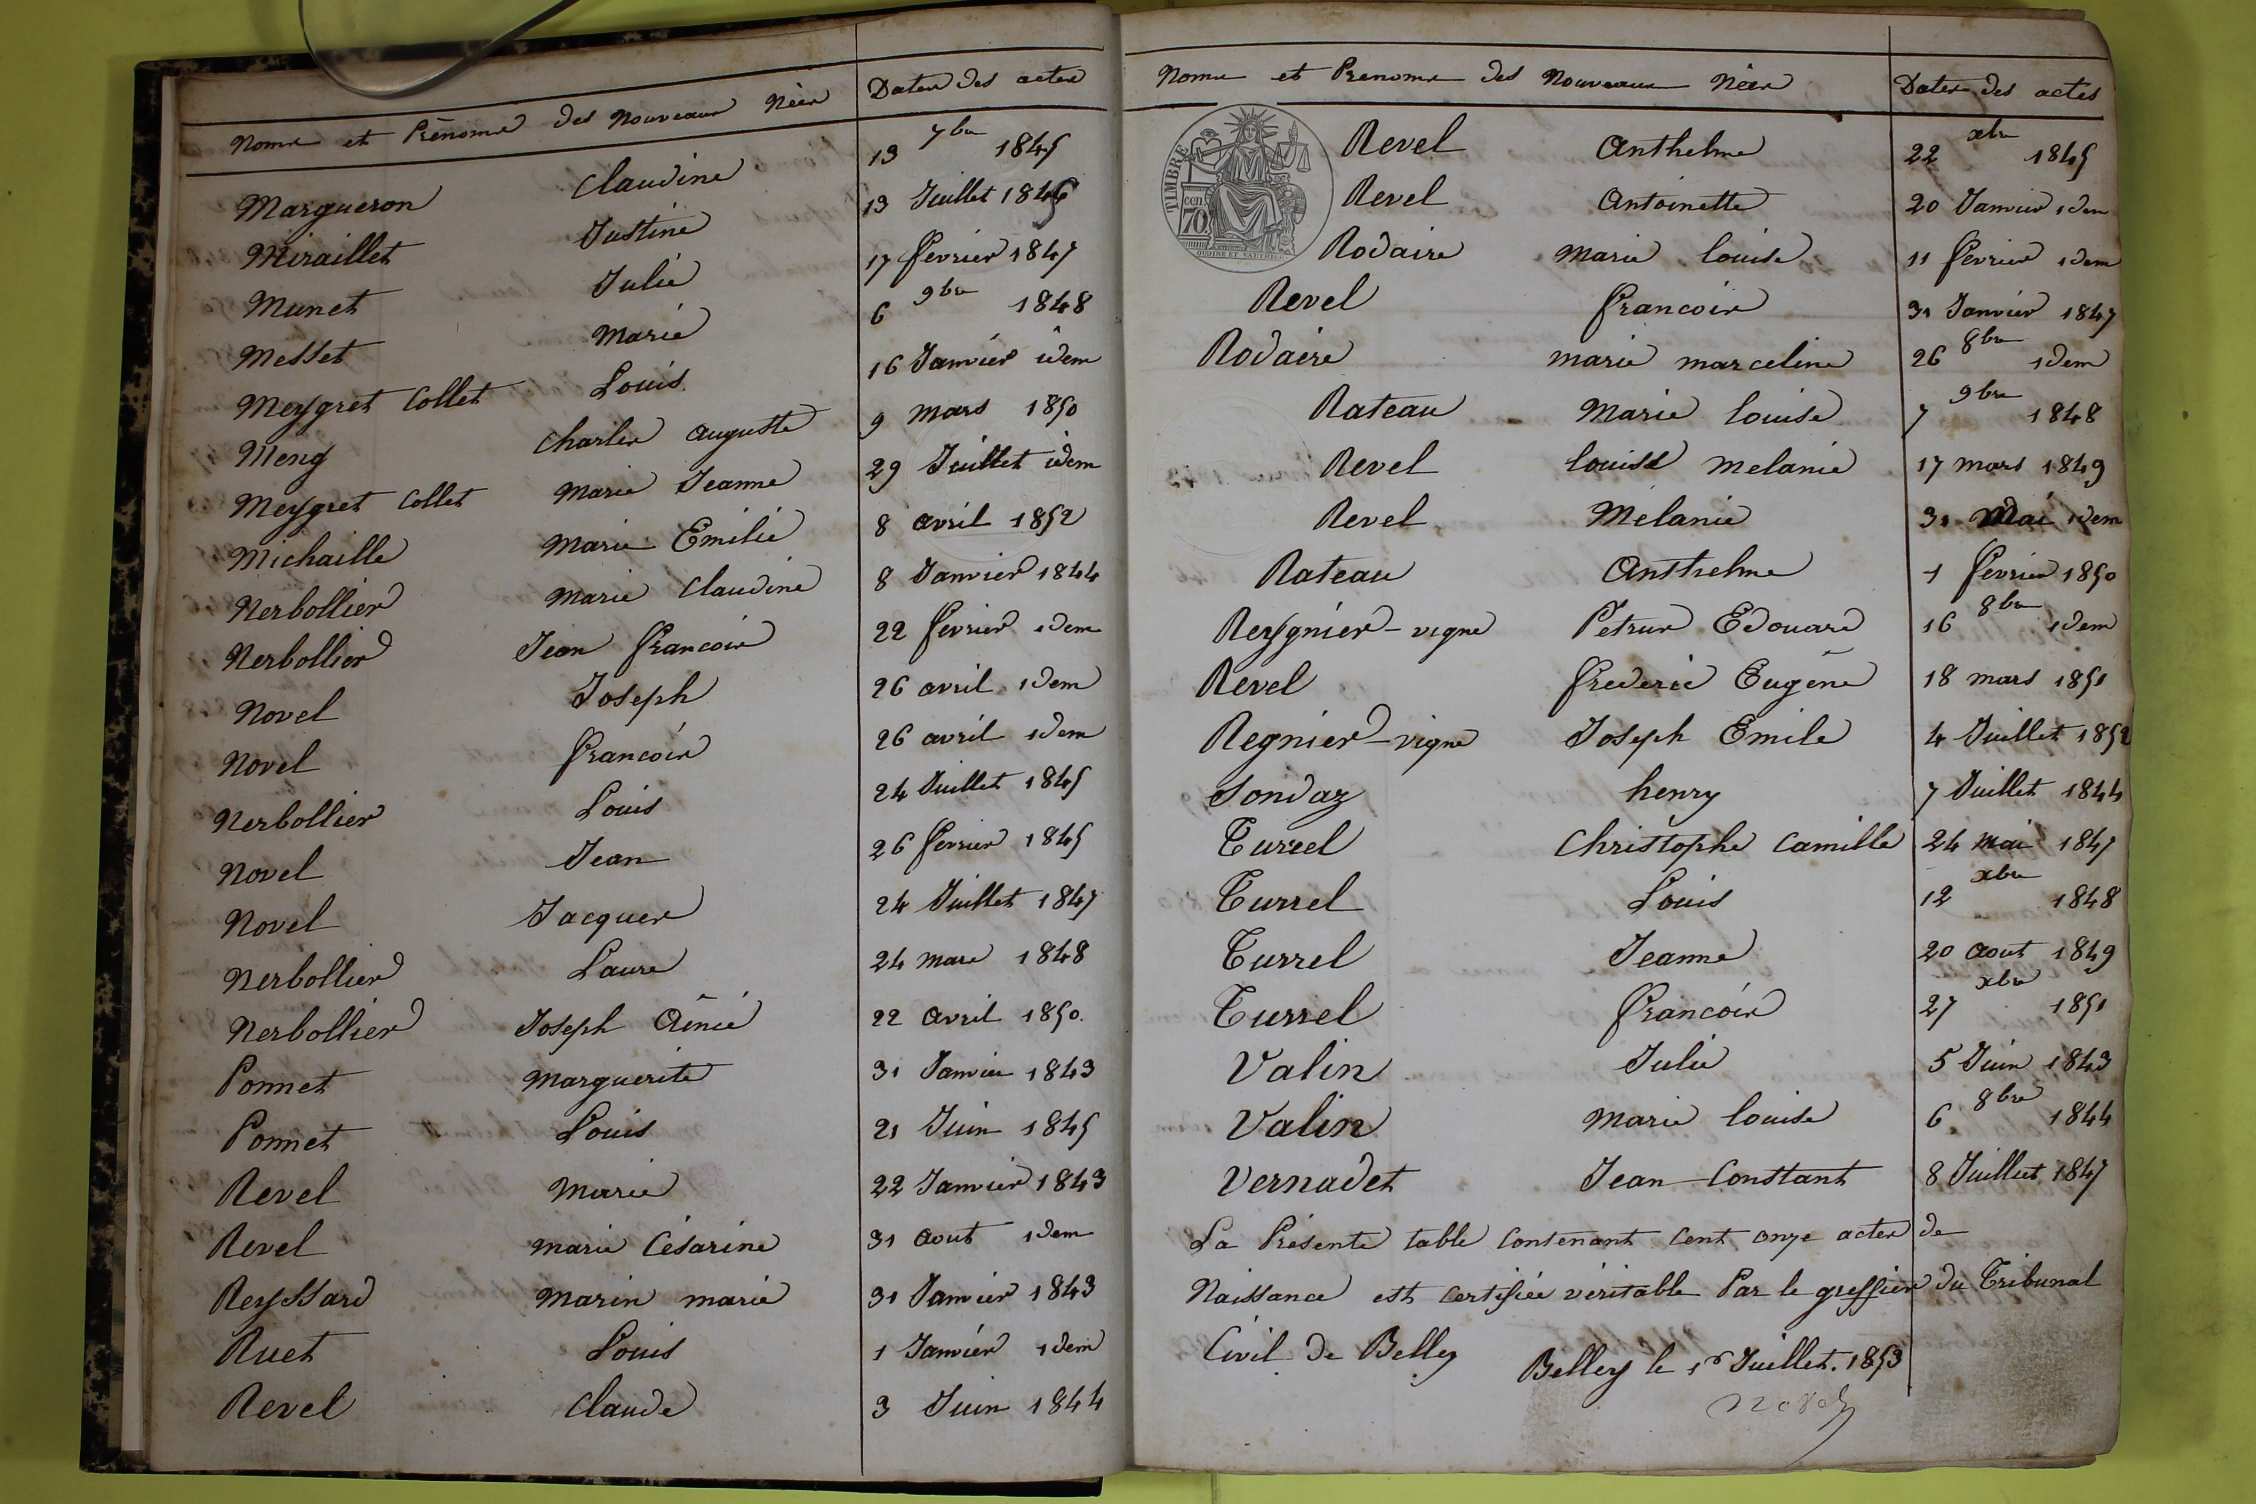 Noms et Prénoms des Nouveaux Nées Dates des actes
Margueron Claudine 13 7bre 1845
Miraillet Justine 13 Juillet 1846
Munet Julie 17 fevrier 1847
Messet Marie 6 9bre 1848
Meygret Collet Louis 16 Janvier idem
Meng Charles auguste 9 mars 1850
Meygret Collet Marie Jeanne 29 Juillet idem
Michaille Marie Emilie 8 avril 1852
Nerbollier Marie Claudine 8 Janvier 1844
Nerbollier Jean francois 22 fevrier idem
Novel Joseph 26 avril idem
Novel francois 26 avril idem
Nerbollier Louis 24 Juillet 1845
Novel Jean 26 fevrier 1845
Novel Jacques 24 Juillet 1847
Nerbollier Laure 24 mars 1848
Nerbollier Joseph 22 avril 1850
Ponnet Marguerite 31 Janvier 1843
Ponnet Louis 21 Juin 1845
Revel Marie 22 Janvier 1843
Revel Marie Césarine 31 aout idem
Reyssard Marin marie 31 Janvier 1843
Ruet Louis 1 Janvier idem
Revel Claude 3 Juin 1844
Noms et Prenoms des Nouveaux Nées Dates des actes
TIMBRE
cen. 70.
OUDINÉ ET SAUTREL
Revel Anthelme 22 xbre 1845
Revel Antoinette 20 Janvier idem
Rodaire Marie Louise 11 fevrier idem
Revel francois 31 Janvier 1847
Rodaire marie marceline 26 8bre idem
Rateau Marie Louise 7 9bre 1848
Revel Louise melanie 17 mars 1849
Revel Mélanie 31 Mai idem
Rateau Anthelme 1 fevrier 1850
Reygnier-vigne Petrus Edouard 16 8bre idem
Revel frederic Eugêne 18 mars 1851
Regnier-vigne Joseph Emile 4 Juillet 1852
Sondaz henry 7 Juillet 1844
Turrel Christophe Camille 24 mai 1847
Turrel Louis 12 xbre 1848
Turrel Jeanne 20 aout 1849
Turrel francois 27 xbre 1851
Valin Julie 5 Juin 1843
Valin Marie Louise 6 8bre 1844
Vernadet Jean Constant 8 Juillet 1847
La Présente table contenant cent onze actes de
Naissance est certifiée véritable Par le greffier du Tribunal
Civil de Belley
Belley le 1er Juillet. 1853